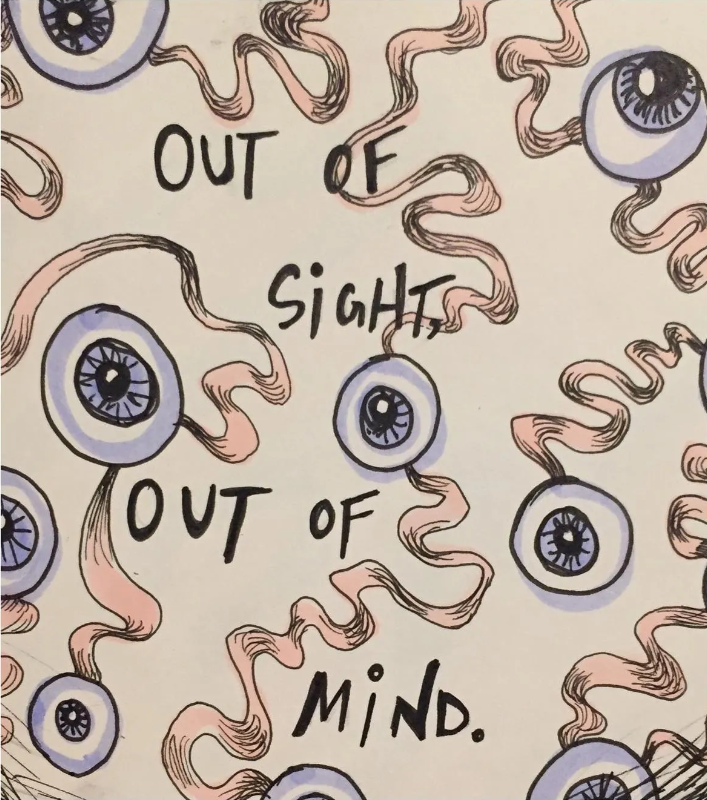 OUT OF
SiGHT,
OUT OF
MiND.